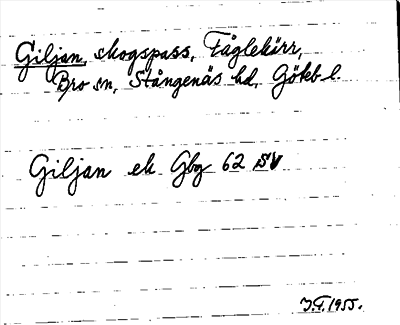 Giljan, skogspass, Fåglekärr,
Bro sn, Stångenäs hd, Göteb l.
Giljan ek Gbg 62 SV
J.T. 1955.